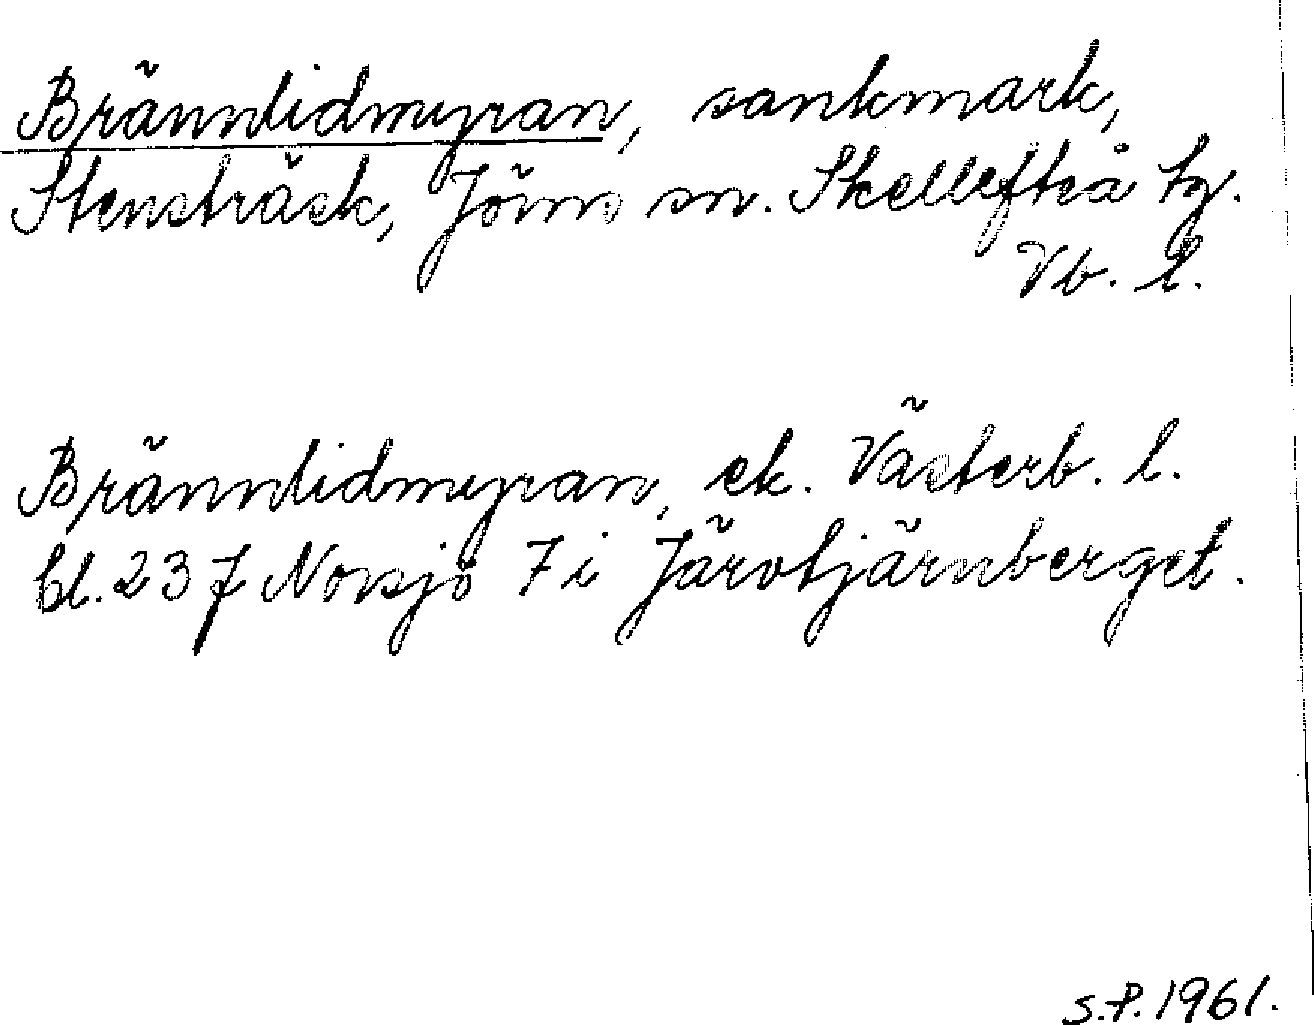 Brännlidmyran, sankmark,
Stensträsk, Jörns sn. Skellefteå tg.
Vb. l.
Brännlidmyran, ek. Västerb. l.
bl. 23 J Norsjö 7 i Järvtjärnberget.
S.P. 1961.